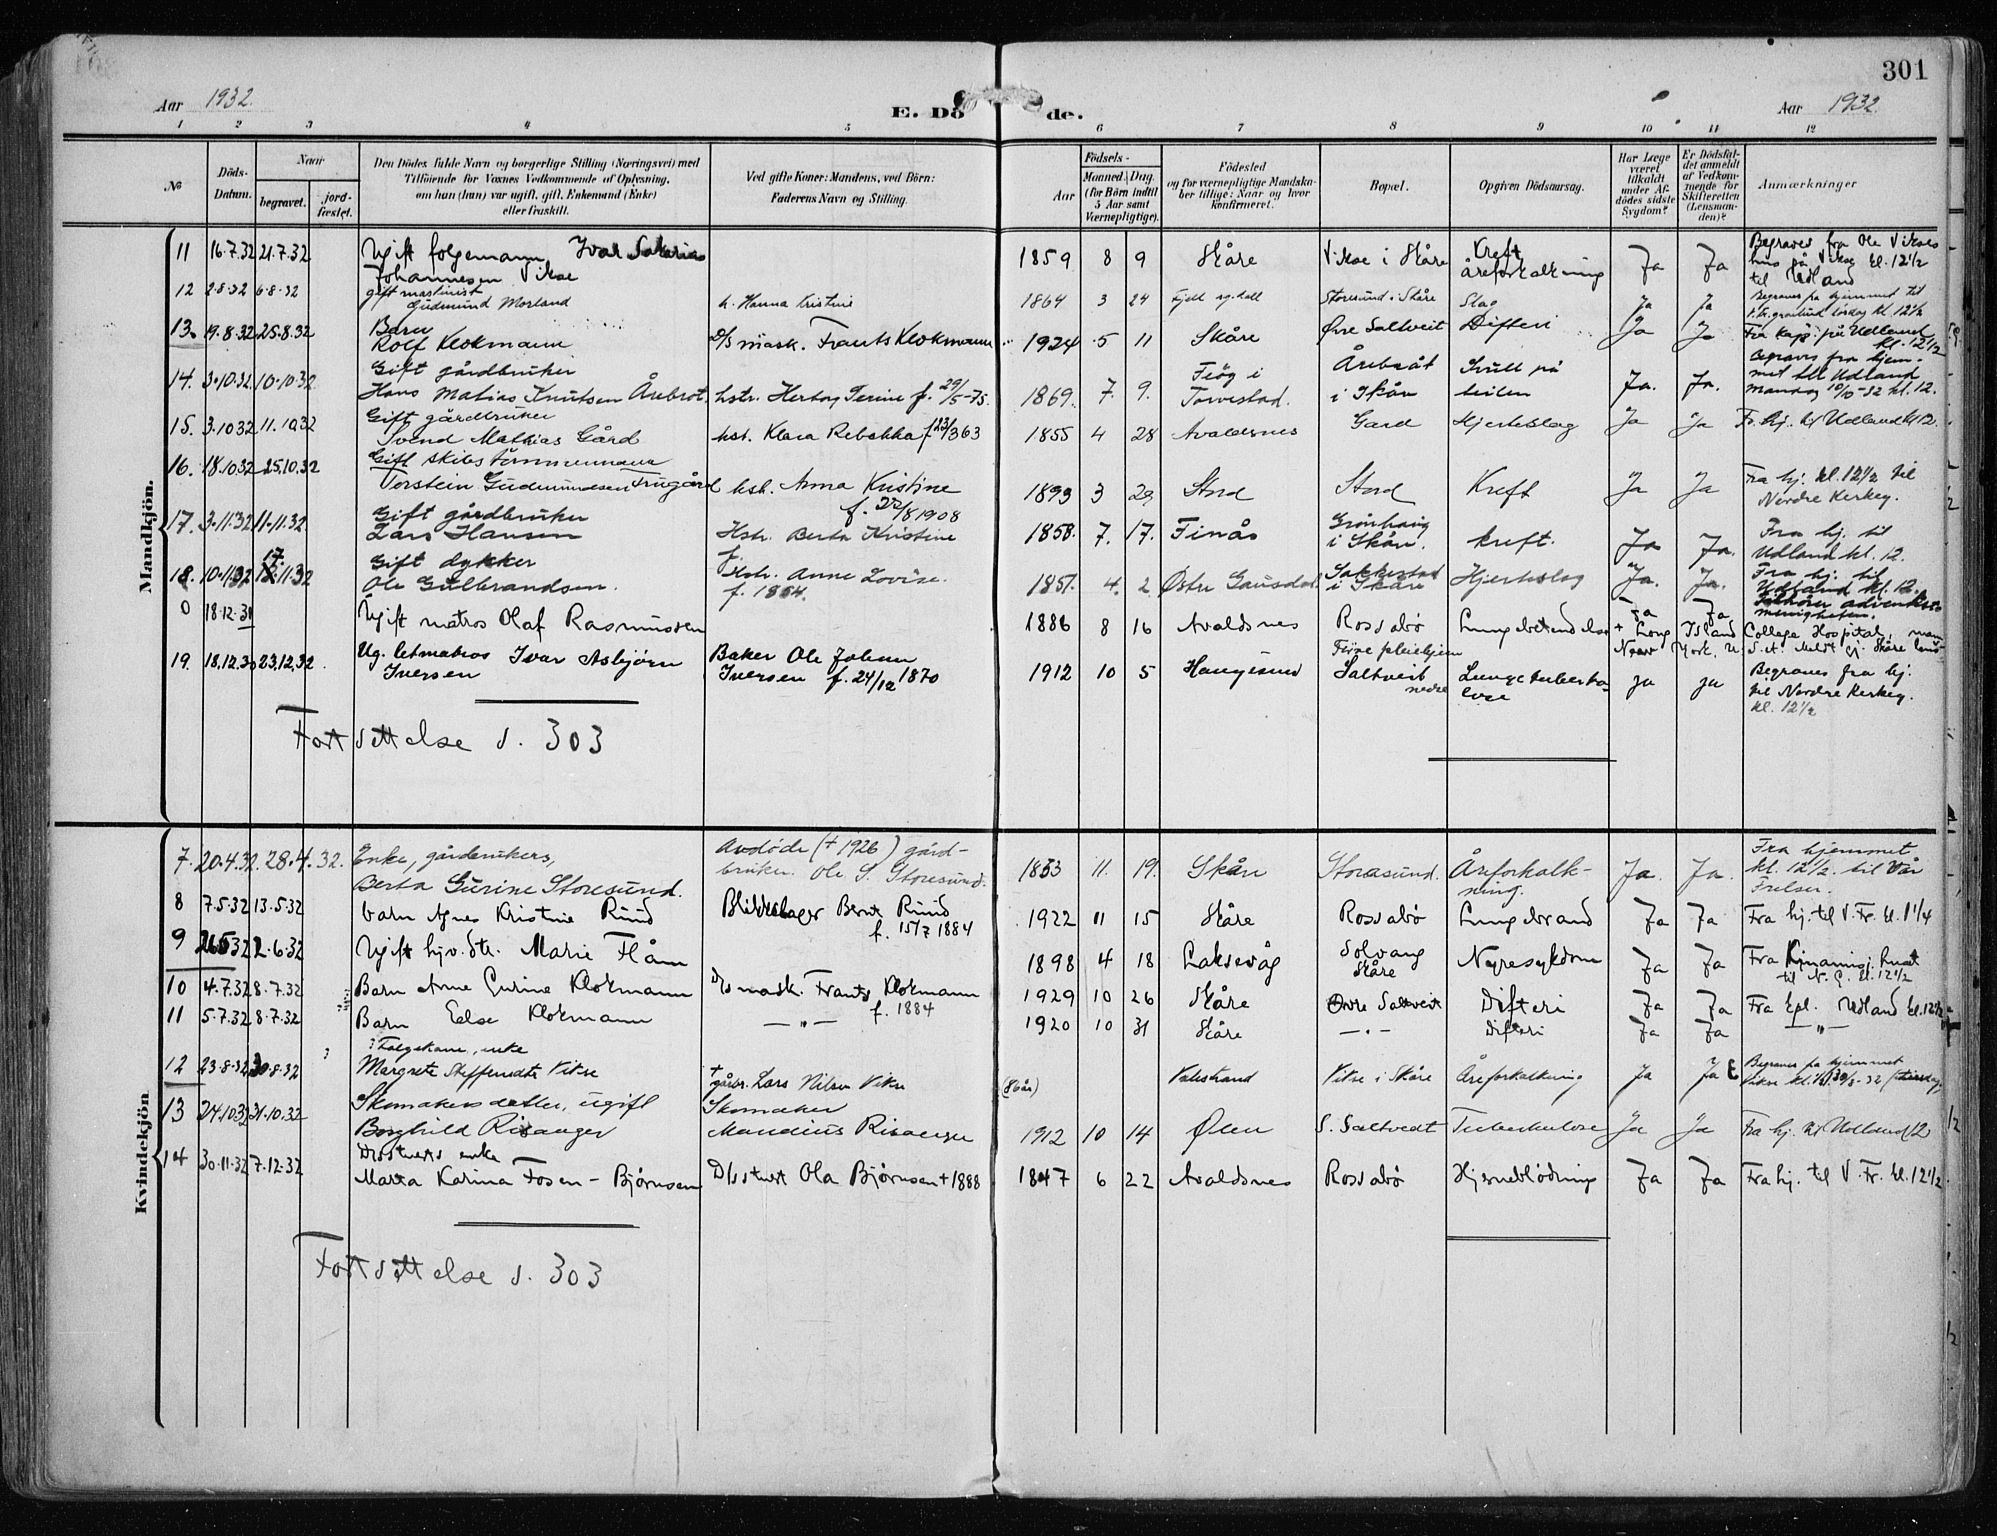 301
Aar 1932. E. Dö de. Aar 1932.
1 2 3 4 5 6 7 8 9 10 11 12
No
Döds-Datum.
Naar
begravet.
jord-fæstet.
Den Dödes fulde Navn og borgerlige Stilling (Næringsvei) med
Tilföiende for Voxnes Vedkommende af Oplysning,
om han (hun) var ugift, gift, Enkemand (Enke)
eller fraskilt.
Ved gifte Koner: Mandens, ved Börn:
Faderens Navn og Stilling.
Födsels-
Aar
Maaned. Dag.
(for Börn indtil
5 Aar samt
Værnepligtige).
Födested
og for værnepligtige Mandska-
ber tillige: Naar og hvor
konfirmeret.
Bopæl.
Opgiven Dödsaarsag.
Har Læge
været
tilkaldt
under Af-
dödes sidste
Sygdom?
Er Dödsfal-
det anmeldt
af Vedkom-
mende for
Skifteretten
(Lensman-
den)?
Anmærkninger
Mandkjön.
11 16.7.32 21.7.32 Ugift folgemann Ivar Sakarias
Johannesen Vikse
1859 8 9 Skåre Vikse i Skåre Kreft
åreforkalkning Ja Ja Begraves fra Ole Vikses
hus på Vikse kl. 12½
til Udland
12 2.8.32 6.8.32 gift maskinist
Gudmund Morland h. Hanna Kristine 1864 3 24 Storesund i Skåre Slag Ja Ja Begraves på hjemmet til
13. 19.8.32 25.8.32 Barn
Rolf Klokmann D/s mask. Frants Klokmann 1924 5 11 Skåre Øvre Saltveit Difteri Ja Ja Fra kap. på Udland
kl. 12½
14. 3.10.32 10.10.32 Gift gårdbruker
Hans Matias Knutsen Årebrot. hstr. Hertog Serine f. 29/5-75. 1869. 7. 9. Fiög i
Torvestad. Årebröt
i Skåre Svull på Ja. Ja. Begraves fra hjem-
met til Udland
Mandag 10/10-32 kl. 12.
15. 3.10 32 11.10 32 Gift gårdbruker
Svend Mathias Gård hst. Klara Rebekka 1855 4 28 Avaldsnes Gard Hjerteslag Ja Ja Fr. hj. til Udland kl 12.
16. 18.10.32 25.10.32 Gift skibstømmermann
Torstein Gudmundsen Frugård hst. Anna Kristine
f. 22/8 1908 1893 3 29 Stord Stord Kreft Ja Ja Fra hj. kl. 12½ til
Nordre Kerkeg.
17. 3.11.32 11.11.32 Gift gårdbruker
Lars Hansen Hstr. Berta Kristine
f. 1858. 7. 17. Finås Grönhaug
i Skåre. kreft. Ja Ja. Fra hj. til
Udland kl. 12.
18. 10.11.32 17.11.32 Gift dykker
Ole Gulbrandsen. Hstr. Anne Lovise.
f. 1864. 1857. 4. 2. Østre Gausdal Sakkestad
i Skåre Hjerteslag Ja. Ja. Fra hj. til
Udland kl. 12.
Tilhører advents-
menigheten.
0 18.12.31 Ugift matros Olaf Rasmussen 1886 8 16 Avaldsnes Rossabö Lungebetendelse Ja Ja
+ Long Island College Hospital,
New York, U.S.A. Meldt gj. Skåre
19. 18.12.32 23.12.32 Ug. letmatros Ivar Asbjörn
Iversen Baker Ole Johan
Iversen f. 24/12 1870 1912 10 5 Haugesund Förre pleiehjem
Saltveit
nedre Lungetuberku-
lose ja ja Begraves fra hj.
til Nordre Kerkeg.
kl. 12½
Fortsettelse s. 303
Kvindekjön
7. 20.4.32. 28.4.32. Enke, gårdbrukers,
Berta Gurine Storesund. Avdöde († 1926) gård-
bruker Ole S. Storesund. 1853 11. 19. Skåre Storasund. Åreforkalk-
ning. Ja. Ja. Fra hjemmet
kl. 12½ til Vår
Frelser.
8 7.5.32 13.5.32 barn Agnes Kristine Rüud Blikkslager Bernt Rüud
f. 15/7 1884 1922 11 15 Skåre Rossabö Lungebrand Ja Ja Fra hj. til V. Fr. kl. 1 1/4
9 26.5.32 2.6.32 Ugift hjv. dtr. Marie Flåm 1898 4 18 Laksevåg Solvang
Skåre Nyresykdom Ja Ja Fra Kinamisj. hus
til N. G. kl. 12½
10 4.7.32 8.7.32 Barn Arne Gurine Klokmann D/s mask. Frants Klokmann
f. 1884 1929 10 26 Skåre Øvre Saltveit Difteri Ja Ja Fra kpl. Udland kl. 12½
11 5.7.32 8.7.32 Barn Else Klokmann — " — 1920 10 31 Skåre — " — Difteri Ja Ja — " —
12 23.8.32 30.8.32 Folgekone, enke
Margrete Steffensdtr Vikse † gårbr. Lars Nilsen Vikse (86 år) Valestrand Vikse i Skåre Åreforkalkning Ja Ja Begraves på hjemmet
Vikse
13 24.10.32 31.10.32 Skomakersdatter, ugift
Borghild Risanger Skomaker
Mandius Risanger 1912 10 14 Ølen S. Saltvedt Tuberkulose Ja Ja Fra hj. til Udland 12
14 30.11.32 7.12.32 D/sstuerts enke
Marta Karina Fosen - Bjørnsen D/sstuert Ola Bjørnsen † 1888 1847 6 22 Avaldsnes Rossabö Hjerneblödning Ja Ja Fra hj. til V. Fr. kl. 12½
Fortsettelse s. 303